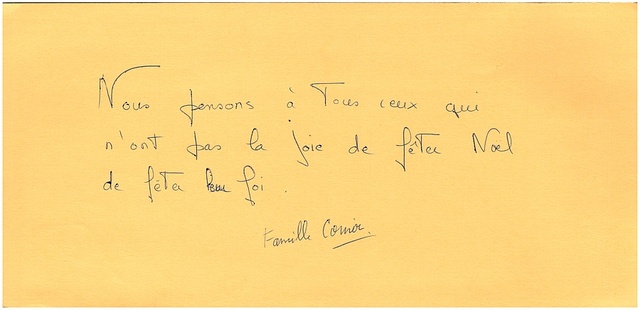 Nous pensons à Tous ceux qui
n'ont pas la joie de fêter Noël
de fêter leur foi.
Famille